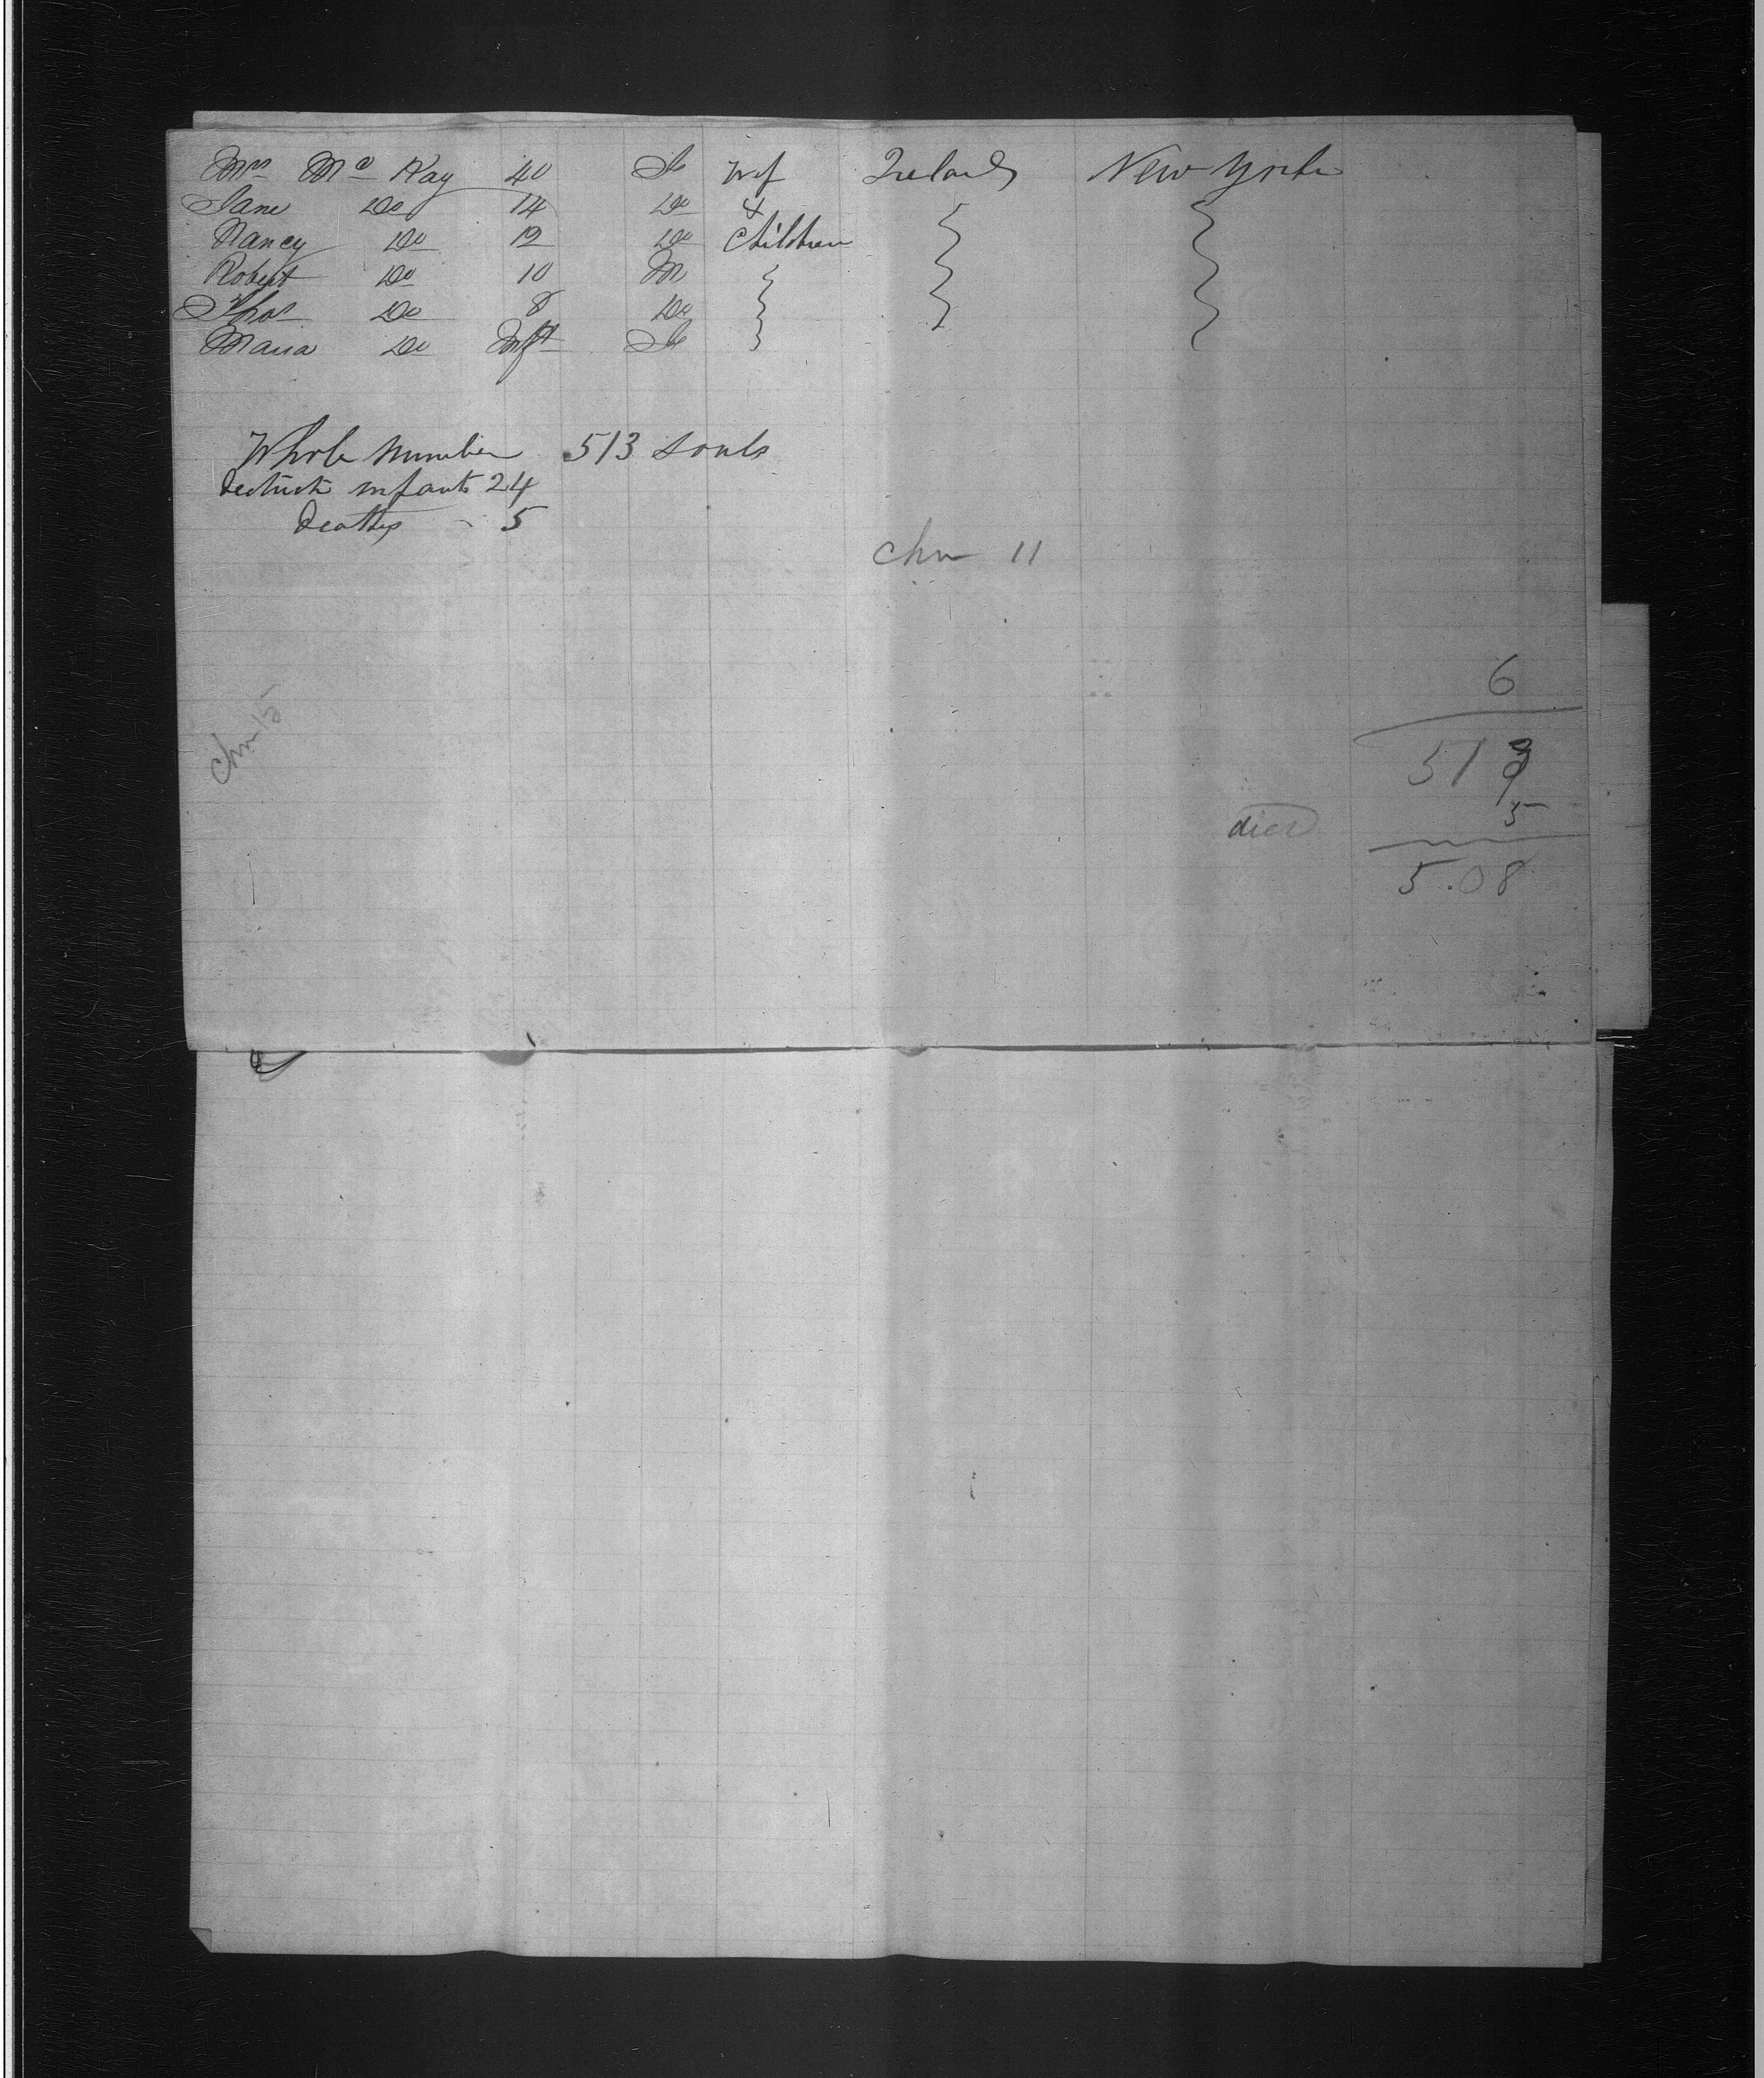 Mrs Mc Kay 40 Fe Wf Ireland New York
Jane Do 14 Do &
Nancy Do 12 Do Children
Robert Do 10 M
Thos Do 8 Do
Maria Do Inft Fe
Whole number 513 souls
deduct infants 24
deaths - 5
chn 11
6
chn 15
513
died 5
5.08